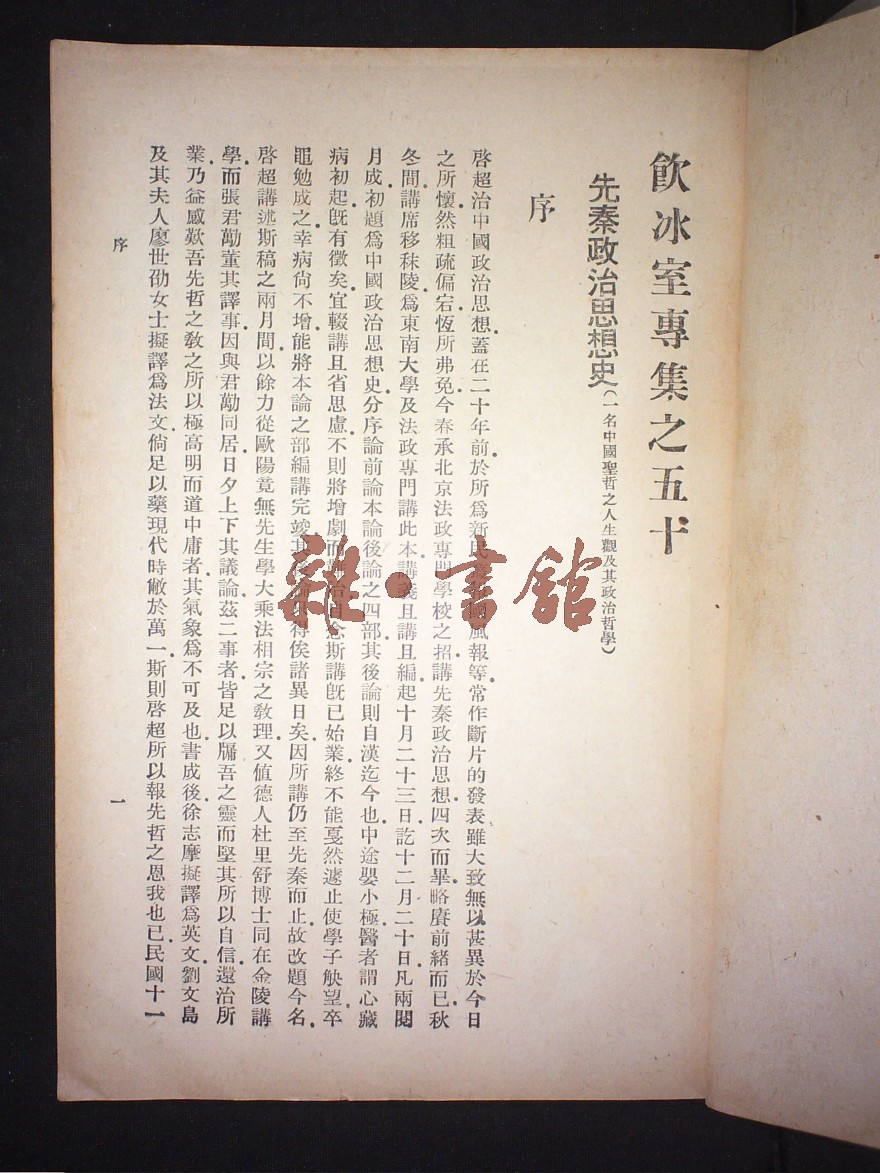 飲冰室專集之五十
先秦政治思想史（一名中國聖哲之人生觀及其政治哲學）
序
啓超治中國政治思想蓋在二十年前於所爲新民國風報等常作斷片的發表雖大致無以甚異於今日
之所懷然粗疏偏宕恆所弗免今春承北京法政專門學校之招講先秦政治思想四次而畢略賡前緒而已秋
冬間講席移秣陵爲東南大學及法政專門講此本講義且講且編起十月二十三日訖十二月二十日凡兩閱
月成初題爲中國政治思想史分序論前論本論後論之四部其後論則自漢迄今也中途嬰小極醫者謂心藏
病初起旣有徵矣宜輟講且省思慮不則將增劇而難治自念斯講旣已始業終不能戛然遽止使學子觖望卒
黽勉成之幸病尙不增能將本論之部編講完竣其得俟諸異日矣因所講仍至先秦而止故改題今名
啓超講述斯稿之兩月間以餘力從歐陽竟無先生學大乘法相宗之敎理又値德人杜里舒博士同在金陵講
學而張君勱董其譯事因與君勱同居日夕上下其議論茲二事者皆足以牖吾之靈而堅其所以自信還治所
業乃益感歎吾先哲之敎之所以極高明而道中庸者其氣象爲不可及也書成後徐志摩擬譯爲英文劉文島
及其夫人廖世劭女士擬譯爲法文倘足以藥現代時敝於萬一斯則啓超所以報先哲之恩我也已民國十一
序
一
雜·書館